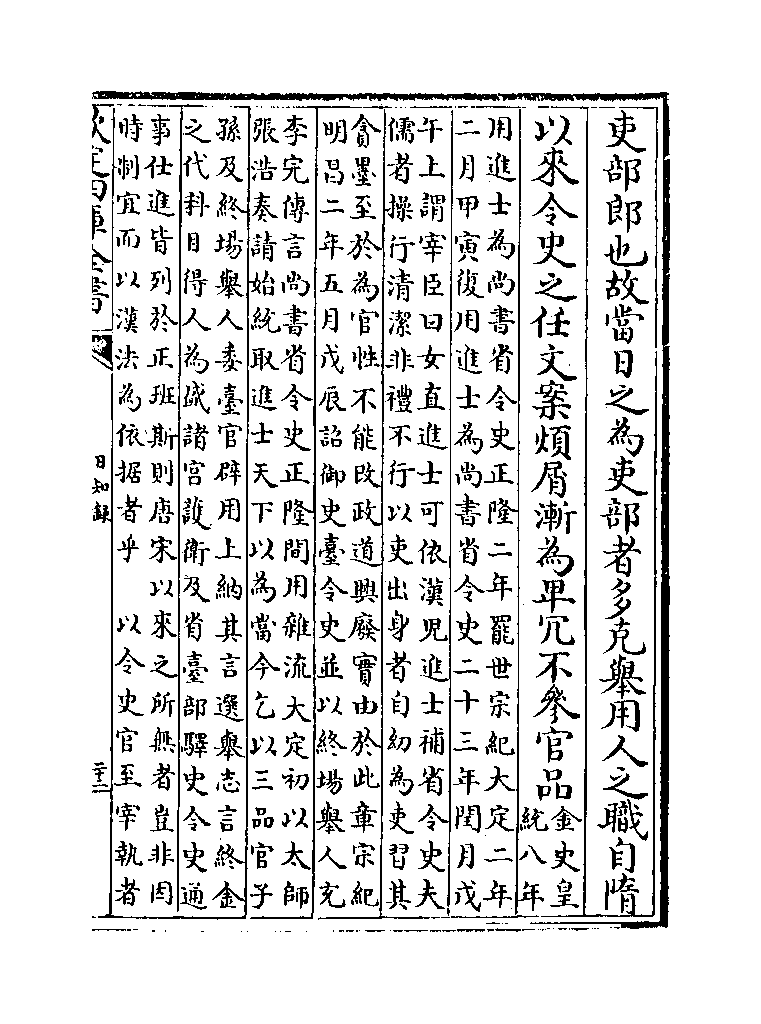 吏部郎也故當日之為吏部者多克舉用人之職自隋
以來令史之任文案煩屑漸為卑冗不參官品
金史皇
統八年
用進士為尚書省令史正隆二年罷世宗紀大定二年
二月甲寅復用進士為尚書省令史二十三年閏月戊
午上謂宰臣曰女直進士可依漢兒進士補省令史夫
儒者操行清潔非禮不行以吏出身者自幼為吏習其
貪墨至於為官性不能改政道興廢實由於此章宗紀
明昌二年五月戊辰詔御史臺令史並以終場舉人充
李完傳言尚書省令史正隆間用雜流大定初以太師
張浩奏請始統取進士天下以為當今乞以三品官子
孫及終場舉人委臺官辟用上納其言選舉志言終金
之代科目得人為盛諸宮護衛及省臺部驛史令史通
事仕進皆列於正班斯則唐宋以來之所無者豈非因
時制宜而以漢法為依据者乎 以令史官至宰執者
欽定四庫全書
日知錄